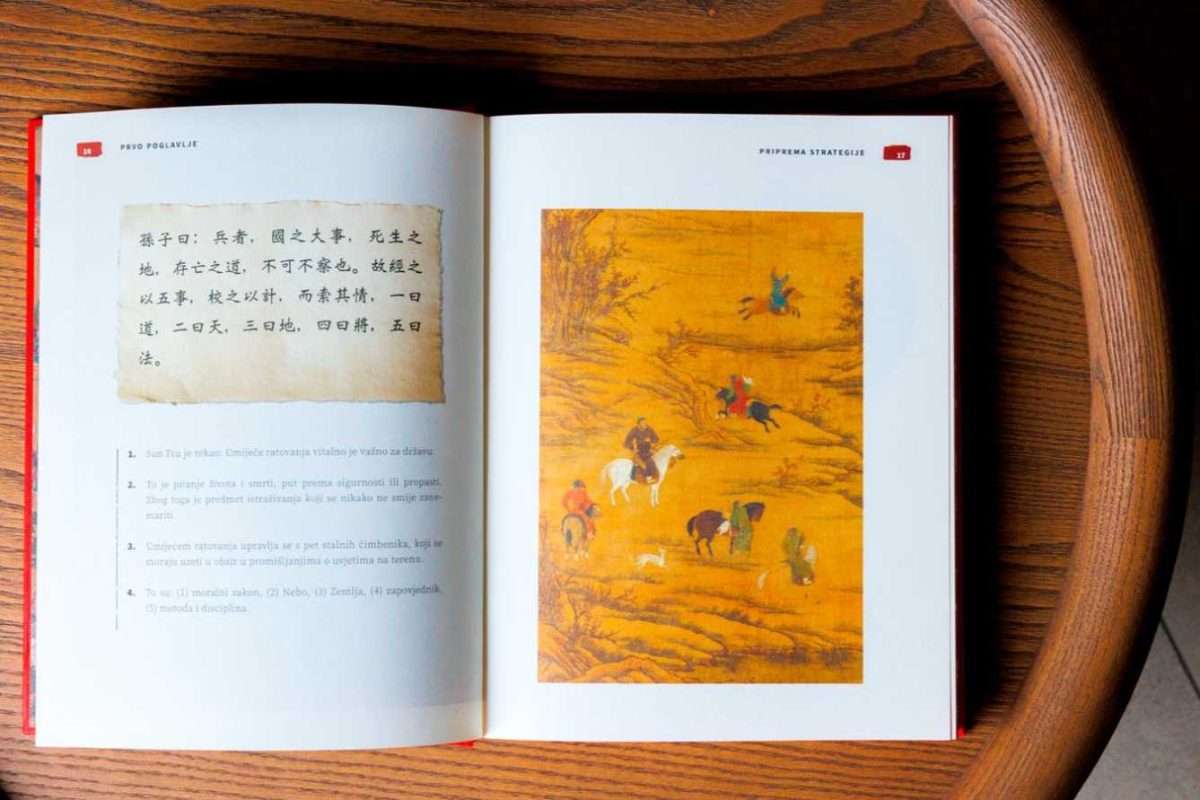 16 PRVO POGLAVLJE
孫子曰：兵者，國之大事，死生之
地，存亡之道，不可不察也。故經之
以五事，校之以計，而索其情，一曰
道，二曰天，三曰地，四曰將，五曰
法。
1. Sun Tzu je rekao: Umijeće ratovanja vitalno je važno za državu.
2. To je pitanje života i smrti, put prema sigurnosti ili propasti.
Zbog toga je predmet istraživanja koji se nikako ne smije zane-
mariti.
3. Umijećem ratovanja upravlja se s pet stalnih čimbenika, koji se
moraju uzeti u obzir u promišljanjima o uvjetima na terenu.
4. To su: (1) moralni zakon, (2) Nebo, (3) Zemlja, (4) zapovjednik,
(5) metoda i disciplina.
PRIPREMA STRATEGIJE 17